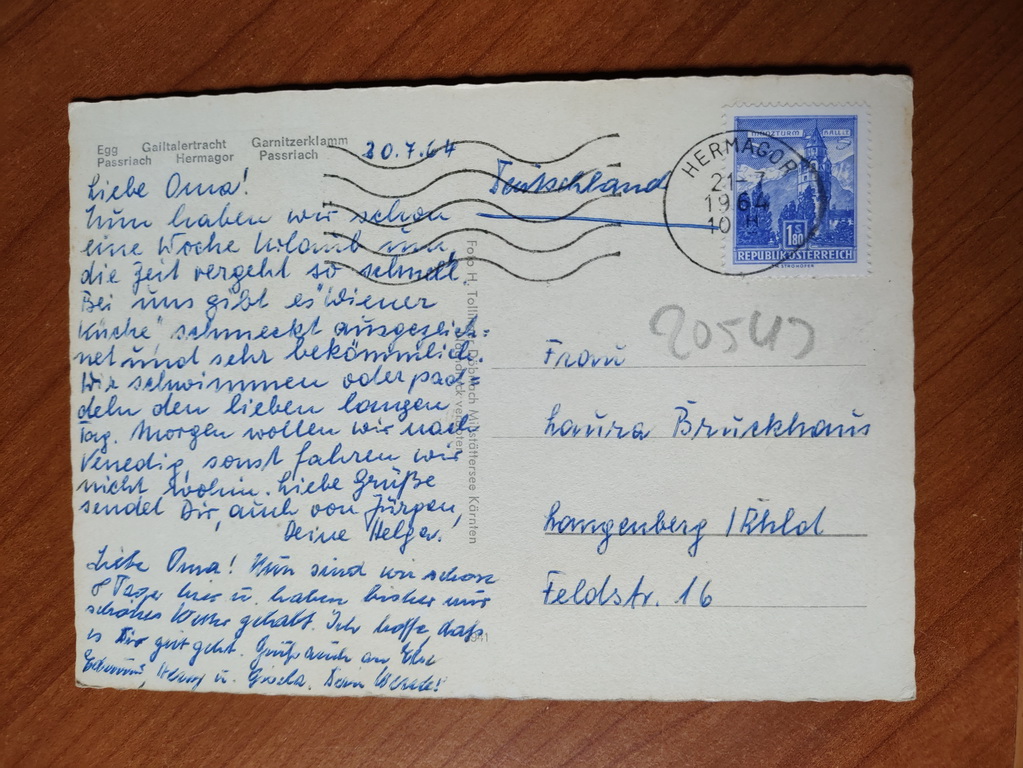 Egg Gailtalertracht Garnitzerklamm
Passriach Hermagor Passriach
20.7.64
Liebe Oma!
Nun haben wir schon
eine Woche Urlaub und
die Zeit vergeht so schnell.
Bei uns gibt es "Wiener
Küche" schmeckt ausgezeich-
net und sehr bekömmlich.
Wir schwimmen oder pad-
deln den lieben langen
Tag. Morgen wollen wir nach
Venedig, sonst fahren wir
nicht wohin. Liebe Grüße
sendet Dir, auch von Jürgen,
Deine Helga.
Liebe Oma! Nun sind wir schon
8 Tage hier u. haben bisher nur
schönes Wetter gehabt. Ich hoffe, daß
es Dir gut geht. Gruß auch an
u. Gisela. Dein
Foto H. Döbriach Millstättersee Kärnten
verboten
Deutschland
HERMAGOR
21-7
1964
10 H
MÜNZTURM HALL I.T.
1 S 80
REPUBLIK ÖSTERREICH
20543
Frau
Laura Brückhaus
Langenberg /Rhld
Feldstr. 16